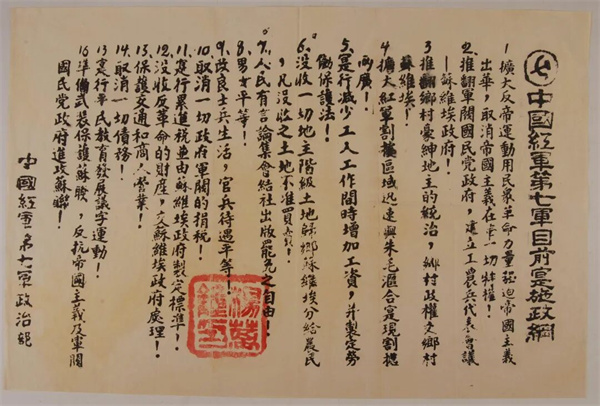 中國紅軍第七軍目前實施政綱
1 擴大反帝運動用民衆革命力量强迫帝國主義
出華，取消帝國主義在華一切特權！
2. 推翻軍閥國民黨政府，建立工農兵代表會議
—蘇維埃政府！
3 推翻鄉村豪紳地主的統治，鄉村政權交鄉村
蘇維埃！
4. 擴大紅軍割據區域迅速與朱毛滙合實現割據
兩廣！
5. 实行减少工人工作間時增加工資，并製定勞
働保護法！
6. 没收一切地主階級土地歸鄉蘇維埃分給農民
，凡没收之土地不准買賣！
7. 人民有言論集會結社出版罷免之自由！
8. 男女平等！
9. 改良士兵生活，官兵待遇平等！
10. 取消一切政府軍閥的捐税！
11. 实行累進税並由蘇維埃政府製定標準！
12. 没收反革命的財産，交蘇維埃政府處理！
13. 保護交通和商人營業！
14. 取消一切債務！
15 实行平民教育發展識字運動！
16 準備武装保護蘇聯，反抗帝國主義及軍閥
國民党政府進攻蘇聯！
中國紅軍第七軍政治部